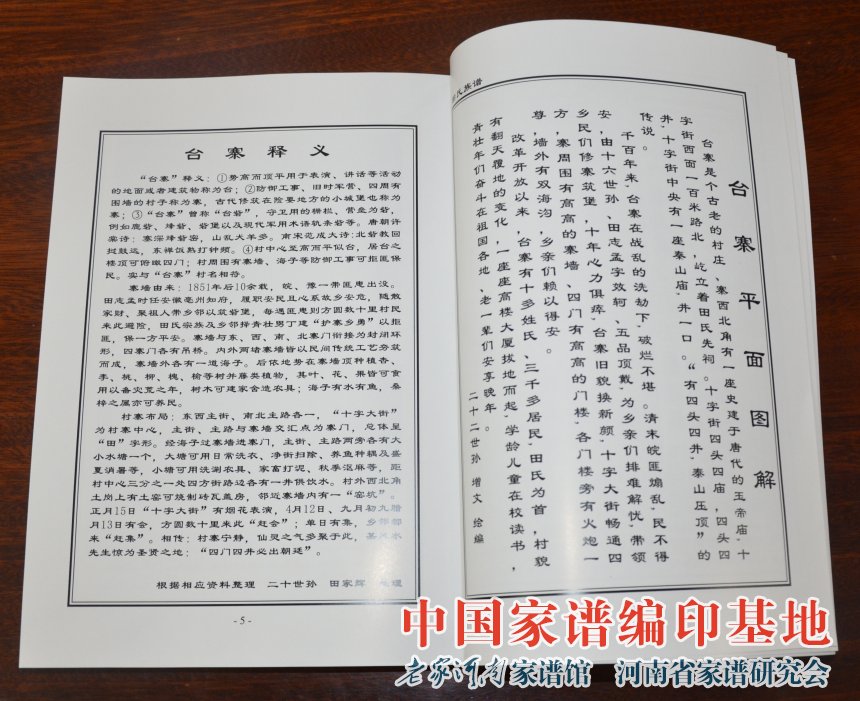 台寨释义
“台寨”释义：①势高而顶平用于表演、讲话等活动
的地面或者建筑物称为台；②防御工事、旧时军营、四周有
围墙的村子称为寨，古代修筑在险要地方的小城堡也称为
寨；③“台寨”曾称“台砦”，守卫用的栅栏、营垒为砦，
例如鹿砦、烽砦、砦堡以及现代军用术语轨条砦等。唐朝许
棠诗：寨深烽砦密，山乱犬羊多。南宋范成大诗:北砦教回
挝鼓远，东禅饭熟打钟频。④村中心呈高而平似台，居台之
楼顶可俯瞰四门；村周围有寨墙、海子等防御工事可拒匪保
民。实与“台寨”村名相符。
寨墙由来：1851年后10余载，皖、豫一带匪患出没。
田志孟时任安徽亳州知府，履职安民且心系故乡安危，随散
家财、聚祖人带乡邻以筑砦堡，每遇匪患则方圆数十里村民
来此避险，田氏宗族及乡邻择青壮男丁建“护寨乡勇”以拒
匪，保一方平安。寨墙与东、西、南、北寨门衔接为封闭环
形，四寨门各有吊桥。内外两堵寨墙皆以民间传统工艺夯筑
而成，寨墙外各有一道海子。后依地势在寨墙顶种植香、
李、桃、柳、槐、榆等树并藤类植物，其叶、花、果皆可食
用以备灾荒之年，树木可建家舍造农具；海子有水有鱼，桑
梓之属亦可养民。
村寨布局：东西主街、南北主路各一，“十字大街”
为村寨中心，主街、主路与寨墙交汇点为寨门，总体呈
“田”字形。经海子过寨墙进寨门，主街、主路两旁各有大
小水塘一个，大塘可用日常洗衣、净街扫除、养鱼种藕及盛
夏消暑等，小塘可用洗涮农具、家畜打泥、秋季沤麻等，距
村中心三分之一处四方街路边各有一井供饮水。村外西北角
土岗上有土窑可烧制砖瓦盖房，邻近寨墙内有一“窑坑”。
正月15日“十字大街”有烟花表演，4月12日、九月初九腊
月13日有会，方圆数十里来此“赶会”；单日有集，乡邻都
来“赶集”。相传：村寨宁静，仙灵之气多聚于此，某风水
先生惊为圣贤之地：“四门四井必出朝廷”。
根据相应资料整理 二十世孙 田家辉
- 5 -
氏族谱
台寨平面图解
台寨是个古老的村庄、寨西北角有一座史建于唐代的玉帝庙，十
字街西面一百米路北，屹立着田氏先祠。十字街四头四庙，四头四
井，十字街中央有一座泰山庙，井一口。“有四头四井，泰山压顶”的
传说。
千百年来，台寨在战乱的洗劫下，破烂不堪。清末皖匪煽乱，民不得
安，由十六世孙、田志孟字效轲、五品顶戴，为乡亲们排难解忧，带领
乡民们修寨筑堡，十年心力俱瘁，台寨旧貌换新颜，十字大街畅通四
方，寨周围有高高的寨墙、四门有高高的门楼，各门楼旁有火炮一
尊，墙外有双海沟，乡亲们赖以得安。
改革开放以来，台寨有十多姓氏，三千多居民，田氏为首，村貌
有翻天覆地的变化，一座座高楼大厦拔地而起，学龄儿童在校读书，
青壮年们奋斗在祖国各地，老一辈们安享晚年。
二十二世孙 增文 绘编
中国家谱编印基地
老家河南家谱馆 河南省家谱研究会